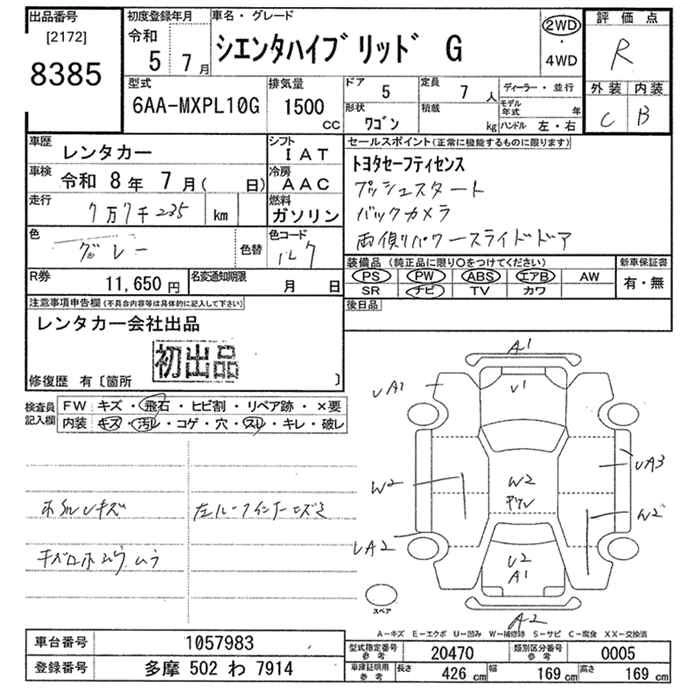 出品番号
[2172]
8385
初度登録年月
令和
5年 7月
車名・グレード
シエンタハイブリッド G
2WD
・
4WD
評価点
R
外装 内装
C B
型式
6AA-MXPL10G
排気量
1500
cc
ドア
5
定員
7 人
形状
ワゴン
積載
kg
ディーラー・並行
モデル年式 年
ハンドル 左・右
車歴
レンタカー
シフト
IAT
車検
令和 8年 7月( 日)
冷房
AAC
走行
7万7千235 km
燃料
ガソリン
色
グレー
色替
色コード
1L7
R券
11,650 円
名変通知期限
月 日
セールスポイント(正常に機能するものに限ります)
トヨタセーフティセンス
プッシュスタート
バックカメラ
両側パワースライドドア
装備品(純正品に限り○をつけてください)
PS PW ABS エアB AW
SR ナビ TV カワ
新車保証書
有・無
後日品
注意事項申告欄(不具合内容等は具体的に記入して下さい)
レンタカー会社出品
初出品
修復歴 有〔箇所 〕
検査員記入欄
FW キズ・飛石・ヒビ割・リペア跡・×要
内装 キズ・汚レ・コゲ・穴・スレ・キレ・破レ
A1
UA1
U1
UA3
W2
W2
W2
UA2
U2
A1
A2
スペア
A-キズ E-エクボ U-凹み W-補修跡 S-サビ C-腐食 XX-交換済
車台番号 1057983
登録番号 多摩 502 わ 7914
型式指定番号 参考 20470
類別区分番号 参考 0005
車検証明用 参考 長さ 426 cm 幅 169 cm 高さ 169 cm